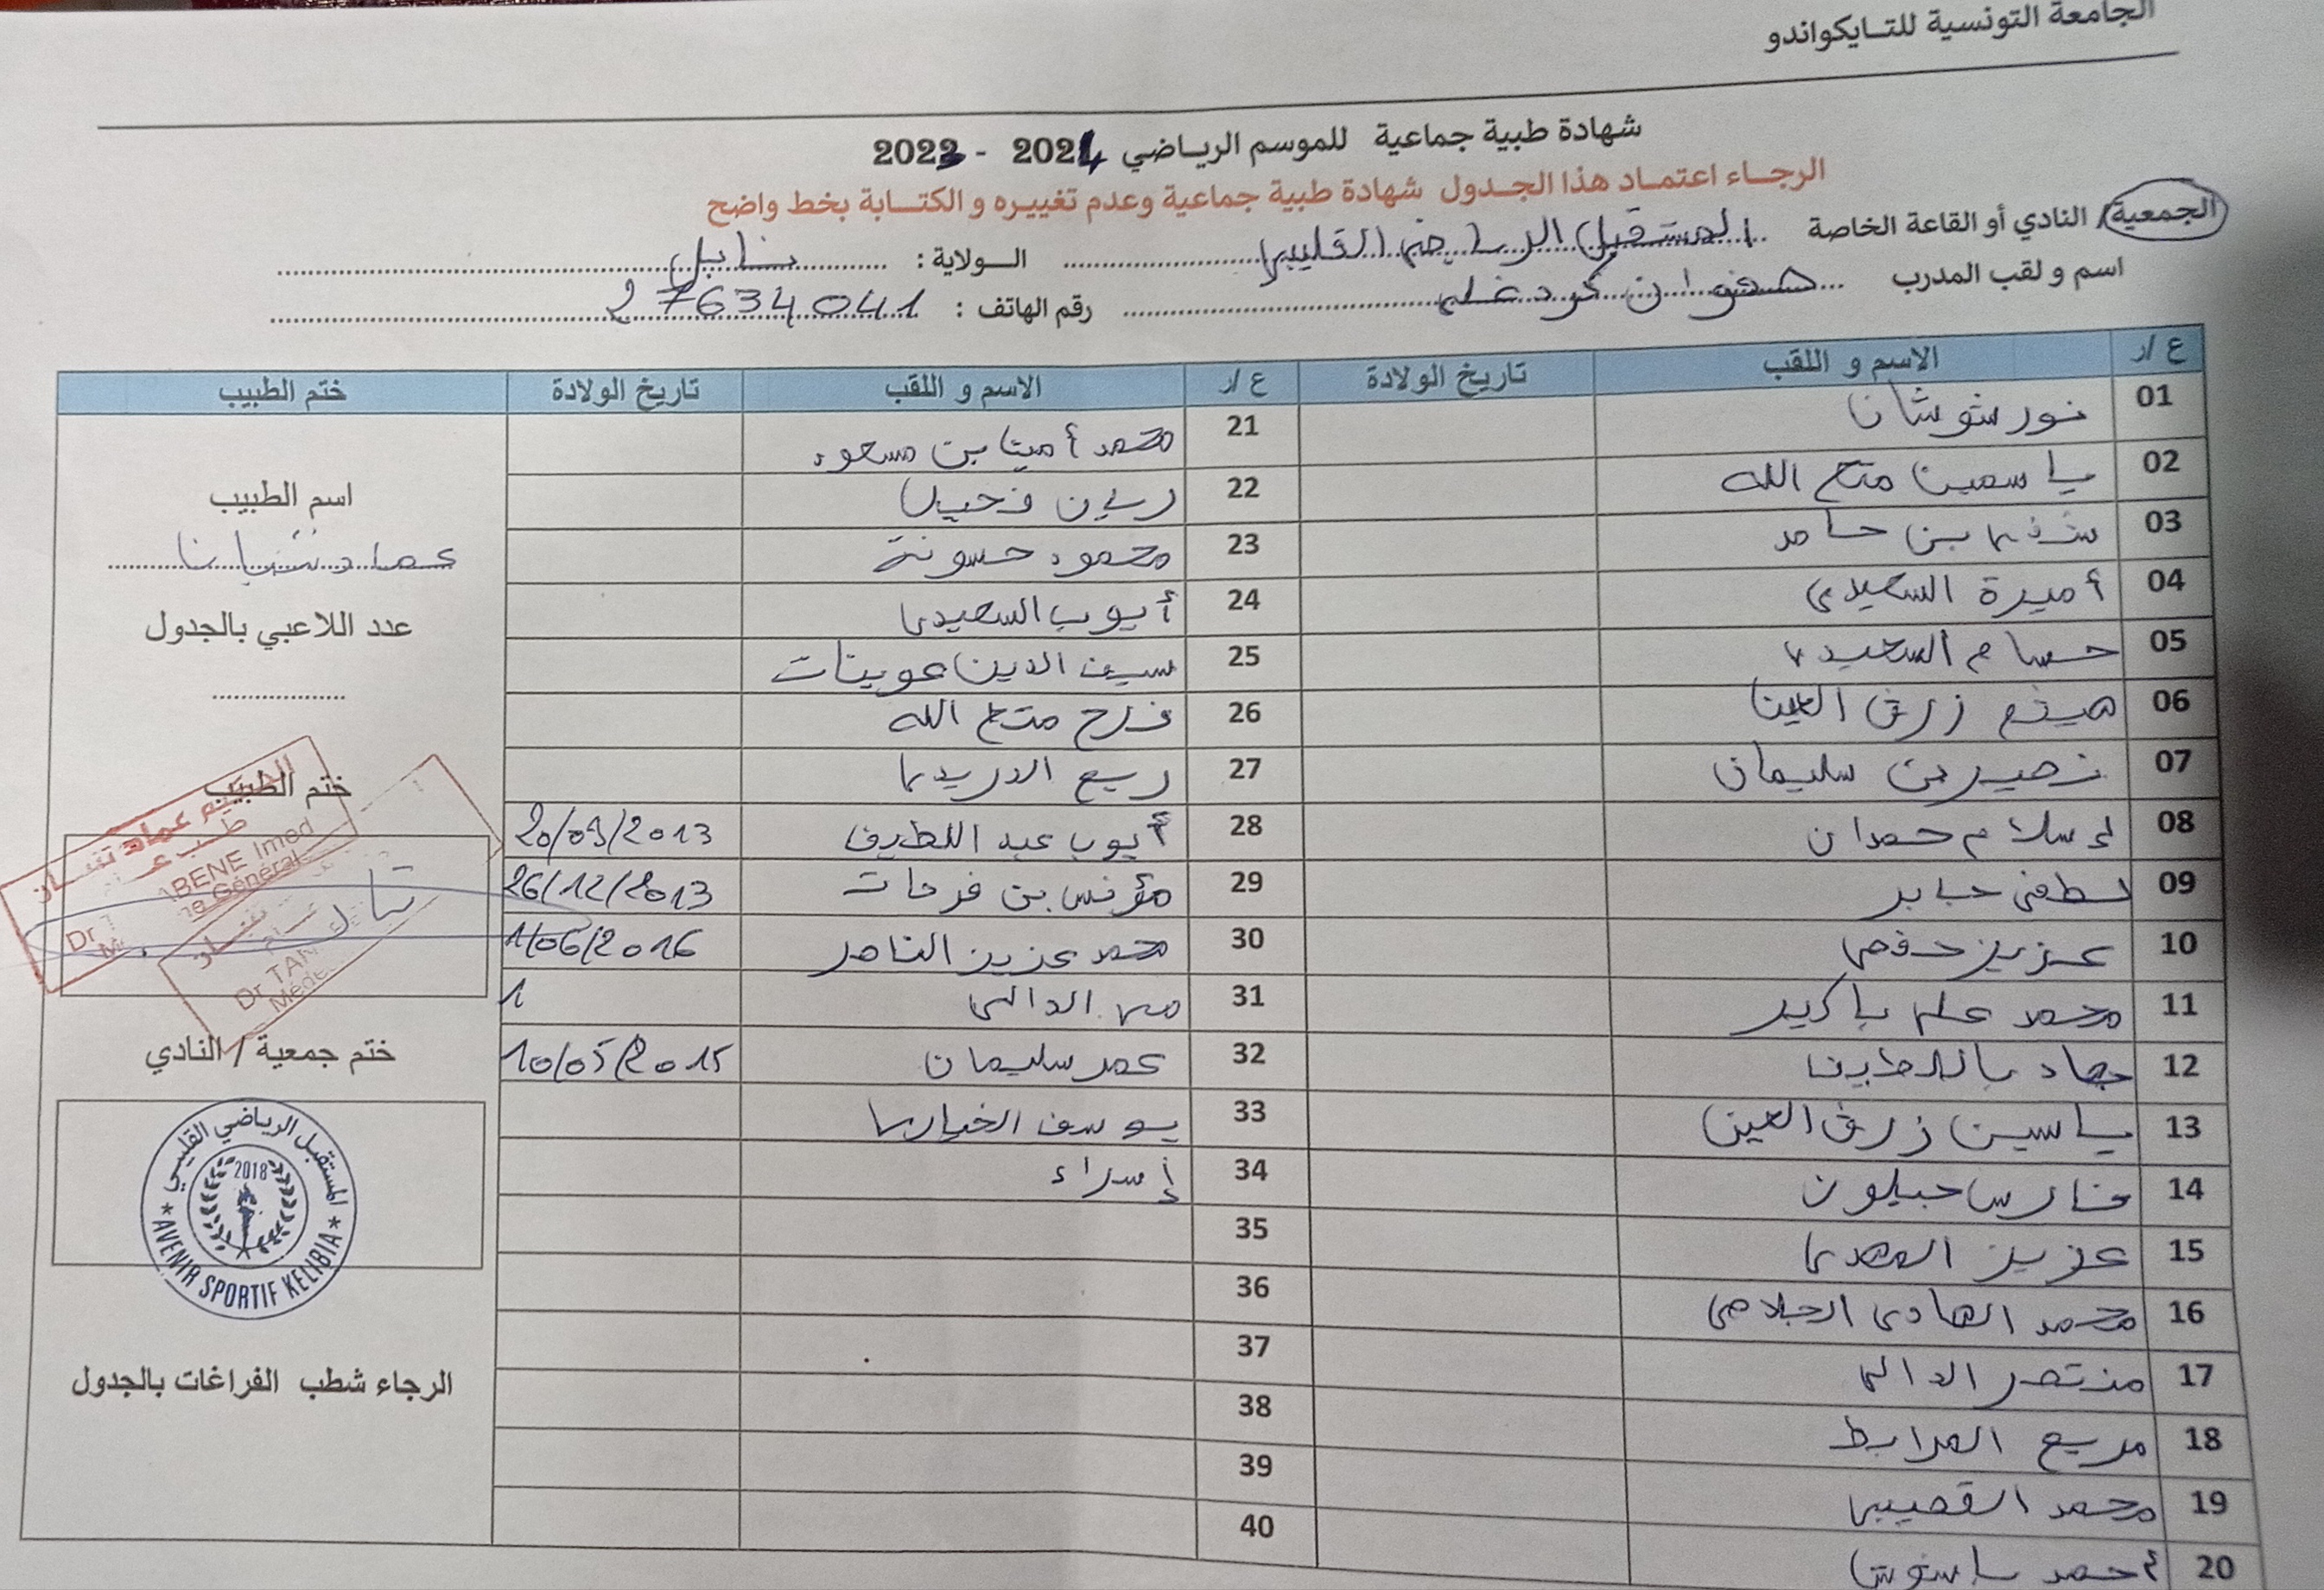 الجامعة التونسية للتايكواندو
شهادة طبية جماعية للموسم الرياضي 2024 - 2023
الرجاء اعتماد هذا الجدول شهادة طبية جماعية وعدم تغييره و الكتابة بخط واضح
الجمعية/ النادي أو القاعة الخاصة المستقبل الرياضي القليبي الولاية : نابل
اسم و لقب المدرب صفوان كردغلي رقم الهاتف : 27634041
ع /ر الاسم و اللقب تاريخ الولادة ع /ر الاسم و اللقب تاريخ الولادة ختم الطبيب
01 نور شوشان
02 ياسمين متع الله
03 بن حامد
04 أميرة السعيدي
05 حسام السعيدي
06 هيثم زرق العين
07 نصير بن سليمان
08 إسلام حمدان
09 لطفي جابر
10 عزيز حفصي
11 محمد علي باكير
12 جهاد
13 ياسين زرق العين
14 فارس جبلون
15 عزيز المهدي
16 محمد الهادي الجلاصي
17 منتصر الدالي
18 مريم المرابط
19 محمد القصيبي
20 أحمد
21 محمد أمين بن مسعود
22 ريان فحيل
23 محمود حسونة
24 أيوب السعيدي
25 سيف الدين عوينات
26 فرح متع الله
27 ربيع الدريدي
28 أيوب عبد اللطيف 20/09/2013
29 مؤنس بن فرحات 26/12/2013
30 محمد عزيز الناصر 1/06/2016
31 الدالي 1
32 عمر سليمان 10/05/2015
33 يوسف الخياري
34 إسراء
35
36
37
38
39
40
اسم الطبيب
عماد
عدد اللاعبي بالجدول
ختم الطبيب
الحكيم عماد
طب عام
ABENE Imed
Général
Dr
Dr TAN
Méde
ختم جمعية / النادي
المستقبل الرياضي القليبي
2018
AVENIR SPORTIF KELIBIA
الرجاء شطب الفراغات بالجدول